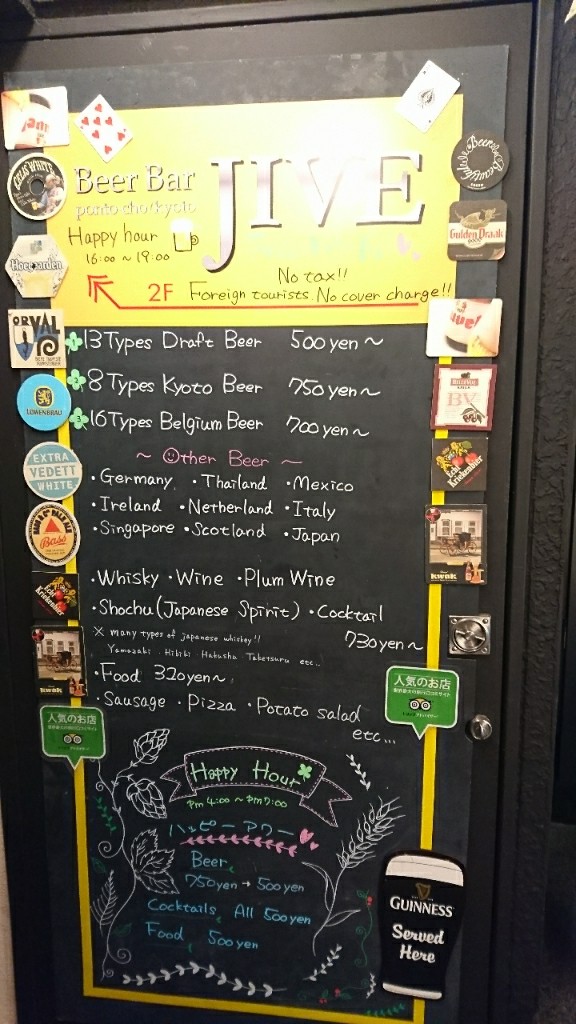 Beer Bar
JIVE
ponto-cho, kyoto
Happy hour
16:00 ~ 19:00
No tax!!
2F Foreign tourists. No cover charge!!
13 Types Draft Beer 500yen~
8 Types Kyoto Beer 750yen~
16 Types Belgium Beer 700yen~
~ Other Beer ~
・Germany ・Thailand ・Mexico
・Ireland ・Netherland ・Italy
・Singapore ・Scotland ・Japan
・Whisky ・Wine ・Plum Wine
・Shochu(Japanese Spirit) ・Cocktail
730yen~
※ many types of japanese whiskey!!
Yamazaki Hibiki Hakushu Taketsuru etc..
・Food 320yen~
・Sausage ・Pizza ・Potato salad
etc...
Happy Hour
Pm 4:00 ~ Pm 7:00
ハッピーアワー
Beer
750yen→500yen
Cocktails All 500yen
Food 500yen
CELIS WHITE
Hoegaarden
ORVAL
LÖWENBRÄU
EXTRA
VEDETT
WHITE
Bass
Echt
Kriekenbier
kwak
人気のお店
A
Gulden Draak
BV
Echt
Kriekenbier
kwak
人気のお店
GUINNESS
Served
Here